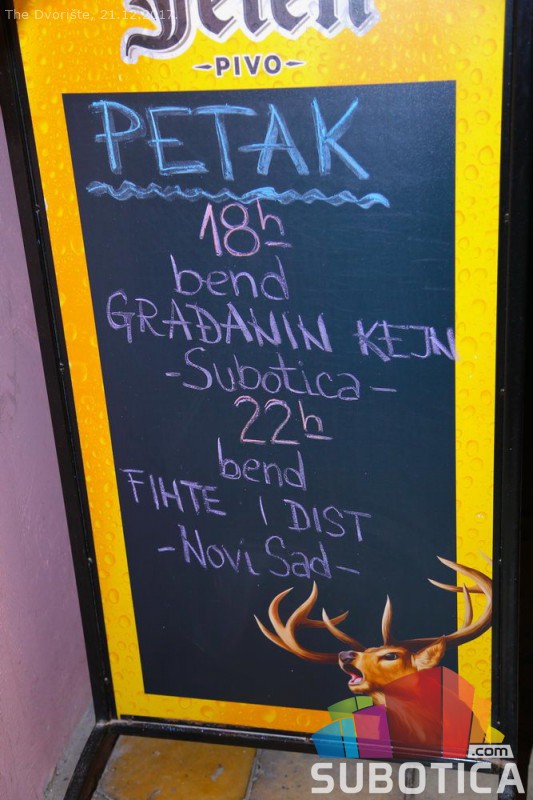 The Dvorište, 21.12.2017.
Jelen
PIVO
PETAK
18h
bend
GRAĐANIN KEJN
-Subotica-
22h
bend
FIHTE I DIST
-Novi Sad-
.com
SUBOTICA